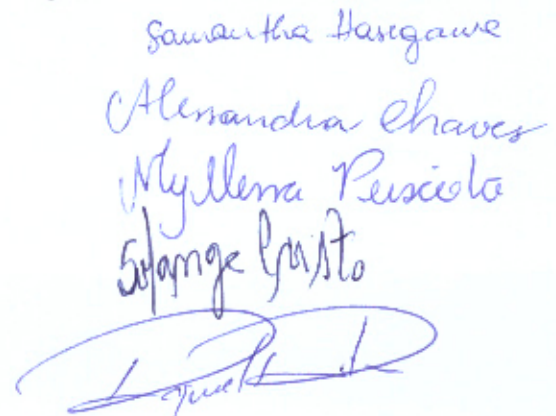 Samantha Hasegawa
Alessandra Chaves
Myllena
Solange Cristo